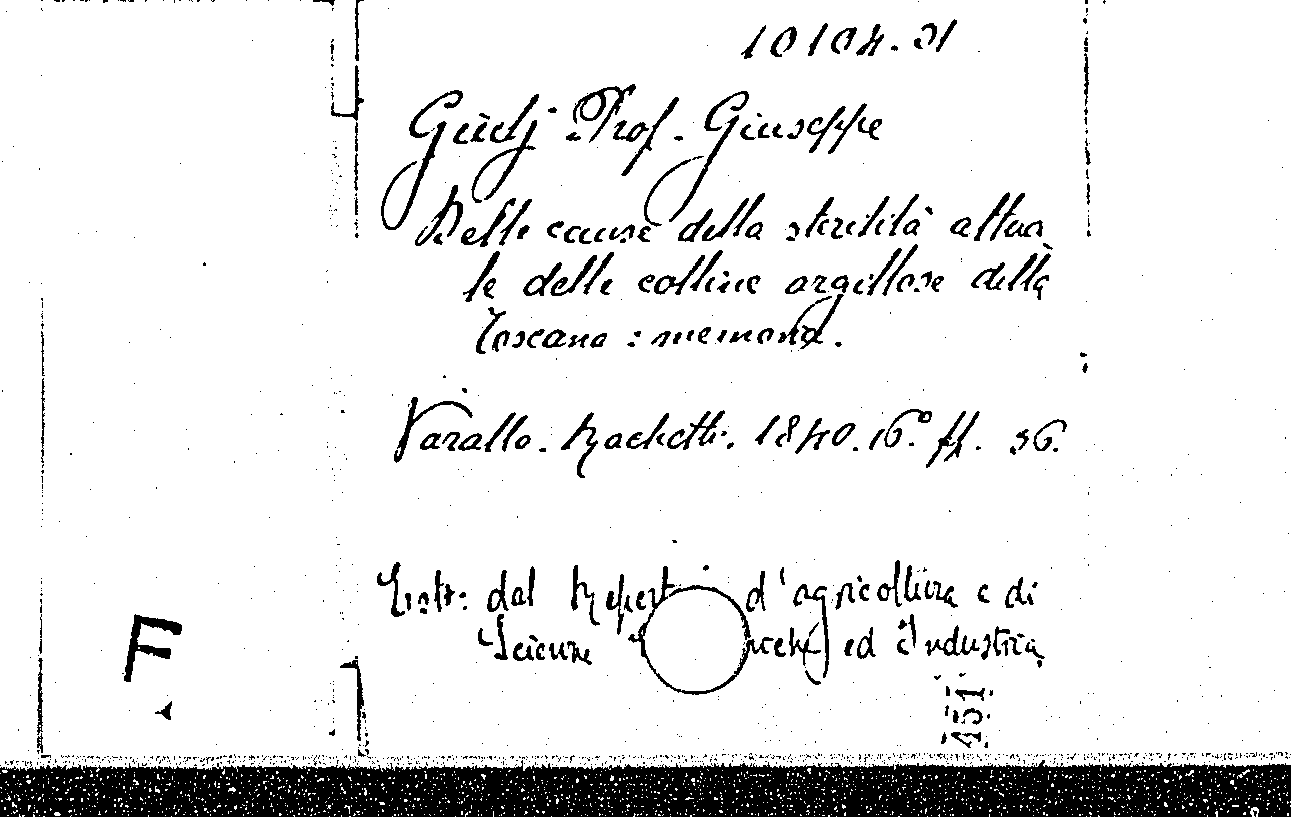 10104.31
Giulj Prof. Giuseppe
Delle cause della sterilità attua
le delle colline argillose della
Toscana : memoria.
Varallo. Rachetti. 1840. 16.° ff. 36.
Estr. dal Repert d'agricoltura e di
Scienze ed Industria
F
451